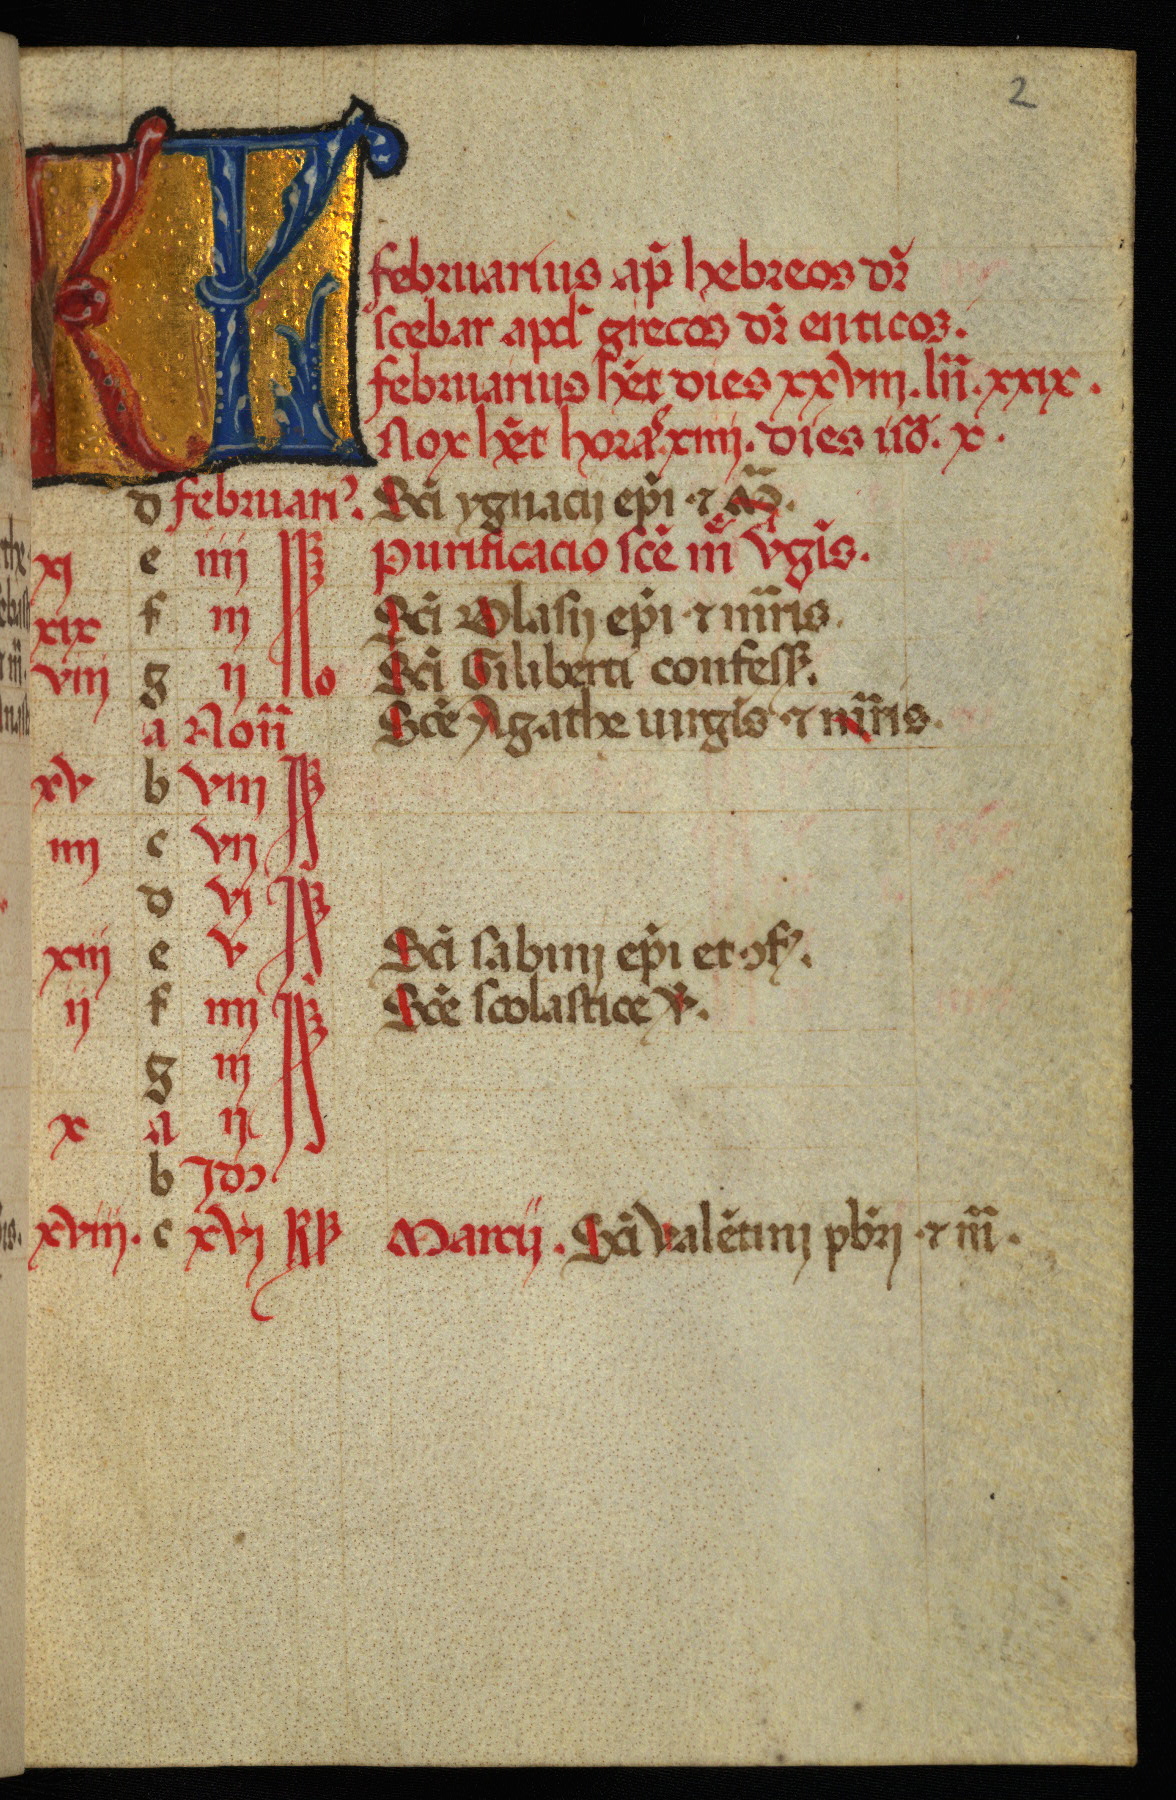 2
KL
februarius ap̃ hebreos dr̃
scebar apd' grecos dr̃ enticoꝫ.
februarius hẽt dies xxviii. lũ. xxix.
Nox hẽt horaꝝ xiiii. dies ũo. x.
d februari'. Sc̃i ygnacij ep̃i · ⁊ m̃.
xi e iiii N Purificacio sc̃e m̃ v̾gĩs.
xix f iii Sc̃i Blasij ep̃i · ⁊ m̃ris.
viii g ii No Sc̃i Giliberti confess̃.
a Non̄ Sc̃e Agathe uirgĩs · ⁊ m̃ris.
xv b viii Id
iiii c vii
d vi Id
xiii e v Sc̃i sabinij ep̃i et ꝯf'.
ii f iiii Id Sc̃e scolastice v̾.
g iii
x a ii
b Idꝰ
xviii. c xvi kł Marcij. Sc̃i valẽtinj pb̃rj · ⁊ m̃.